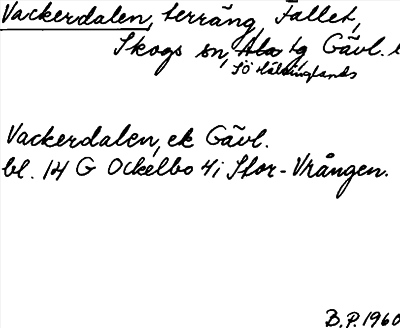 Vackerdalen, terräng, Fallet,
Skogs sn, Ala tg Gävl. l
Sö Hälsinglands
Vackerdalen, ek Gävl.
bl. 14 G Ockelbo 4i Stor-Vrången.
B.P. 1960